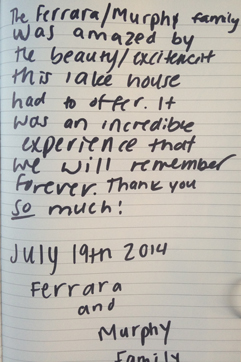 The Ferrara/Murphy family
was amazed by
the beauty/excitement
this lake house
had to offer. It
was an incredible
experience that
we will remember
forever. Thank you
so much!
July 19th 2014
Ferrara
and
Murphy
Family